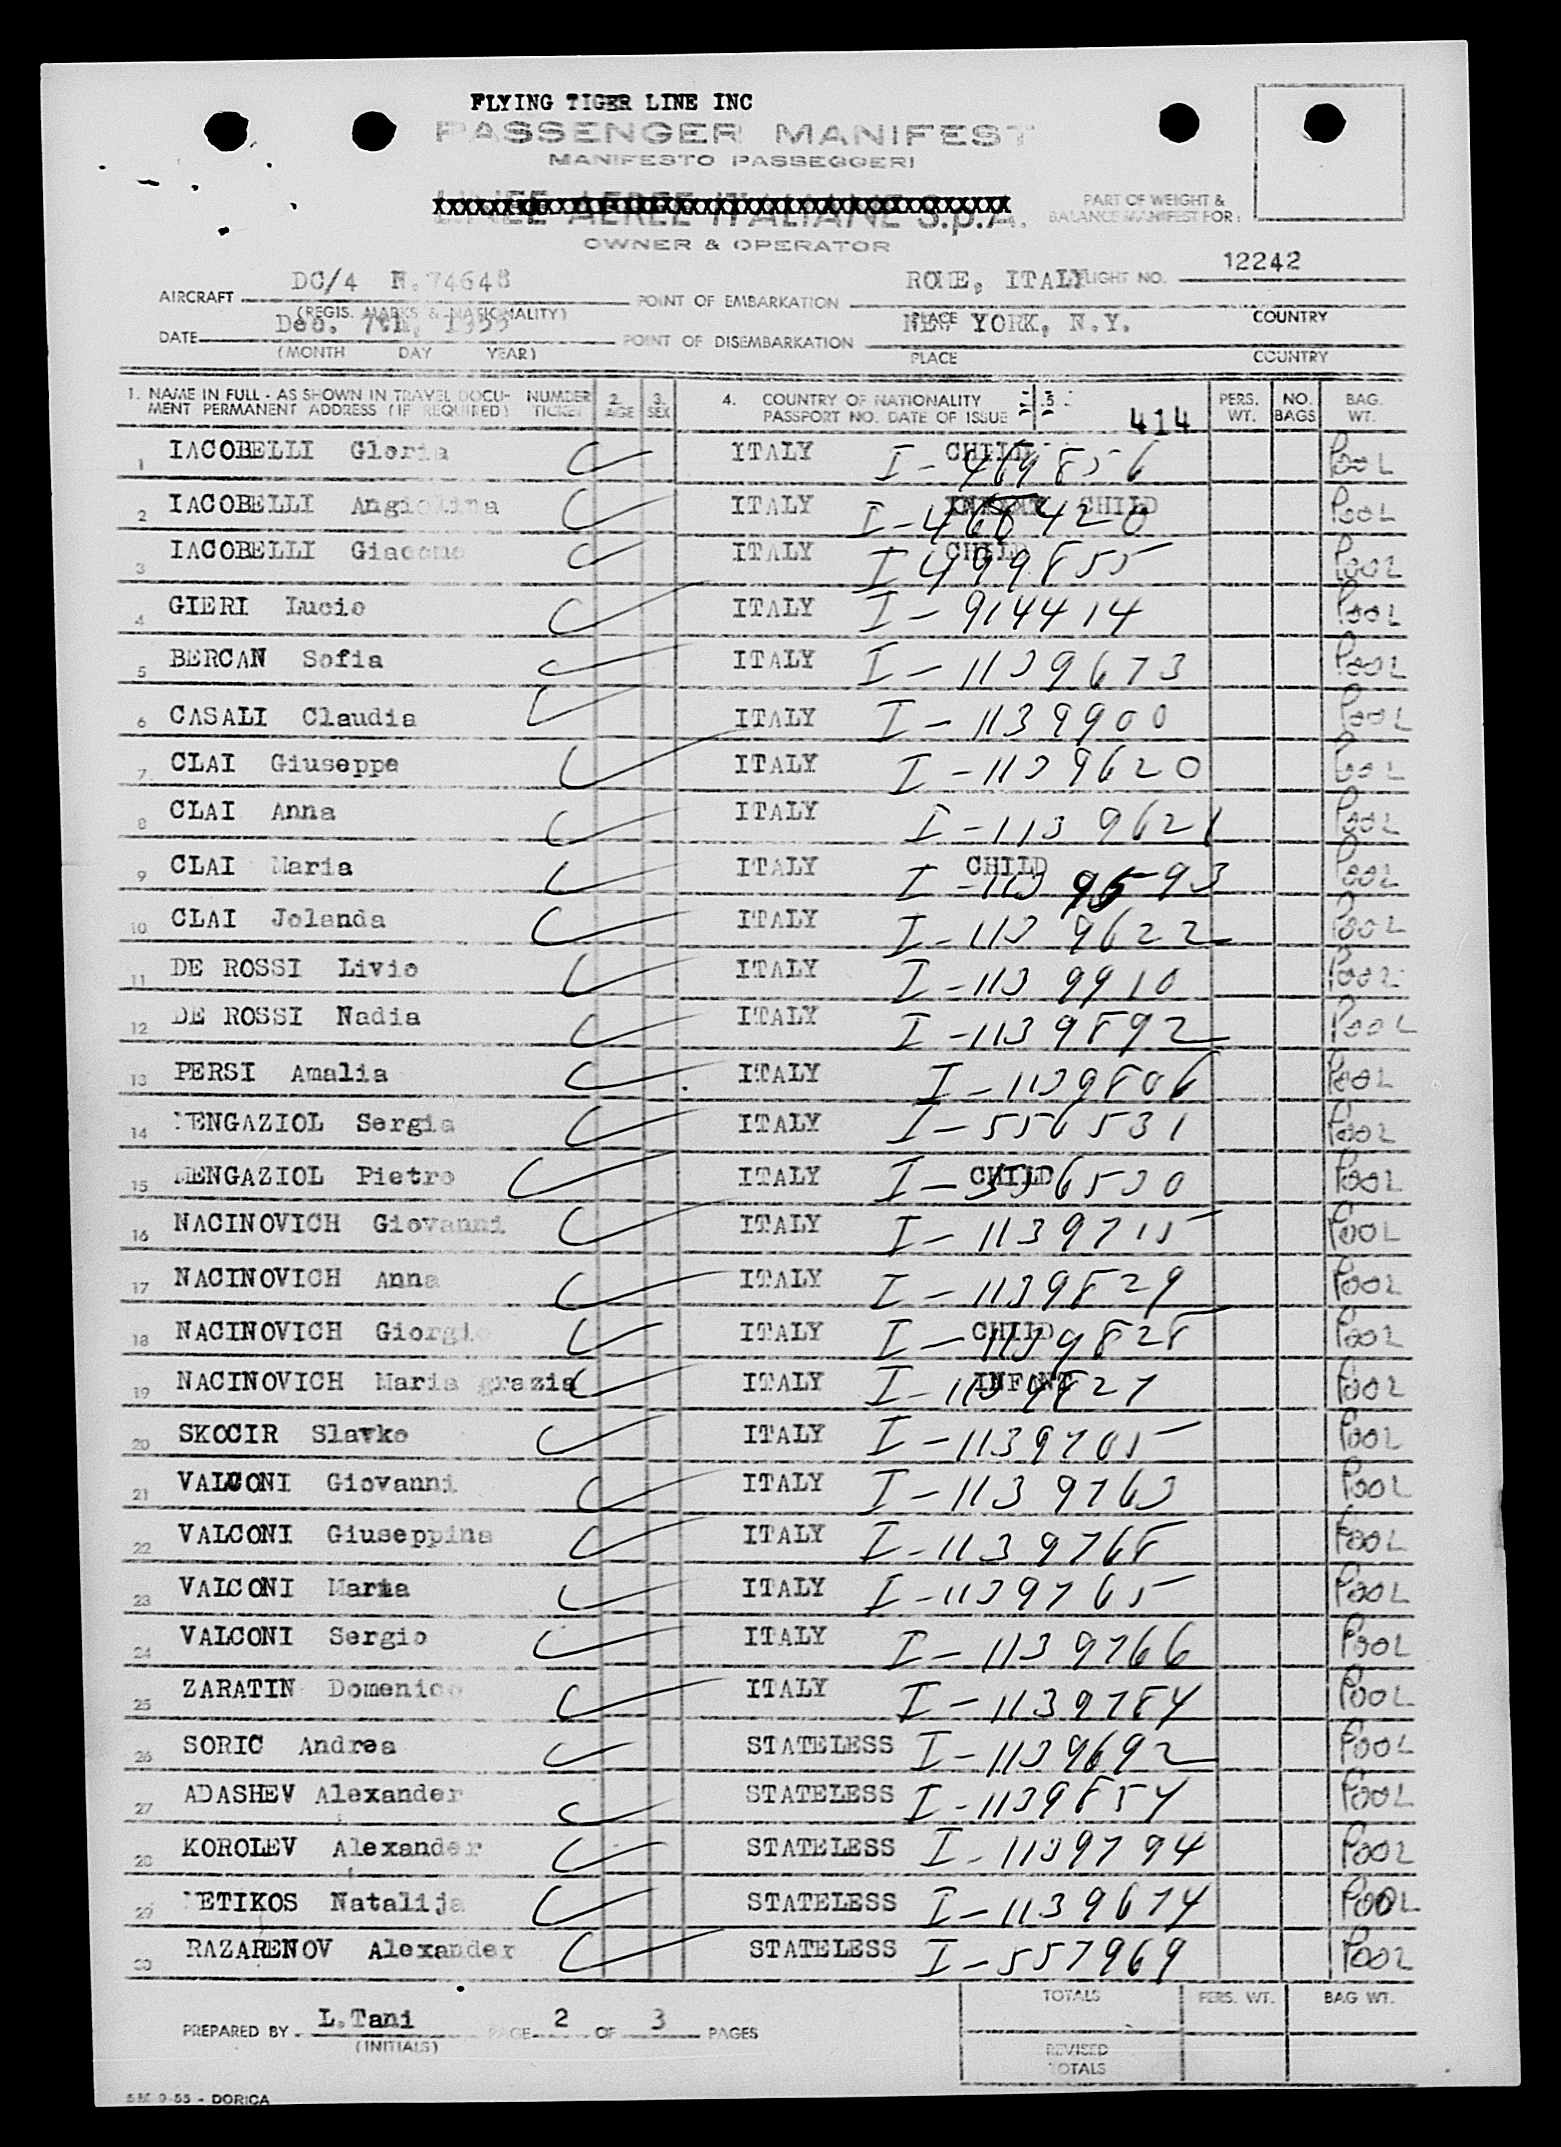 FLYING TIGER LINE INC
PASSENGER MANIFEST
MANIFESTO PASSEGGERI
LINEE AEREE ITALIANE S.p.A.
OWNER & OPERATOR
PART OF WEIGHT &
BALANCE MANIFEST FOR:
AIRCRAFT DC/4 N.74648 POINT OF EMBARKATION ROME, ITALY FLIGHT NO. 12242
(REGIS. MARKS & NATIONALITY) PLACE COUNTRY
DATE Dec. 7th, 1955 POINT OF DISEMBARKATION NEW YORK, N.Y.
(MONTH DAY YEAR) PLACE COUNTRY
1. NAME IN FULL - AS SHOWN IN TRAVEL DOCU- NUMBER 2. 3. 4. COUNTRY OF NATIONALITY 5. PERS. NO. BAG.
MENT PERMANENT ADDRESS (IF REQUIRED) TICKET AGE SEX PASSPORT NO. DATE OF ISSUE 414 WT. BAGS WT.
1 IACOBELLI Gloria ITALY CHILD I-469856 POOL
2 IACOBELLI Angiolina ITALY INFANT CHILD I-468420 POOL
3 IACOBELLI Giacomo ITALY CHILD I 499855 POOL
4 GIERI Lucio ITALY I-914414 POOL
5 BERCAN Sofia ITALY I-1139673 POOL
6 CASALI Claudia ITALY I-1139900 POOL
7 CLAI Giuseppe ITALY I-1139620 POOL
8 CLAI Anna ITALY I-1139621 POOL
9 CLAI Maria ITALY CHILD I-1139593 POOL
10 CLAI Jolanda ITALY I-1139622 POOL
11 DE ROSSI Livio ITALY I-1139910 POOL
12 DE ROSSI Nadia ITALY I-1139892 POOL
13 PERSI Amalia ITALY I-1139806 POOL
14 MENGAZIOL Sergia ITALY I-556531 POOL
15 MENGAZIOL Pietro ITALY CHILD I-556530 POOL
16 NACINOVICH Giovanni ITALY I-1139715 POOL
17 NACINOVICH Anna ITALY I-1139829 POOL
18 NACINOVICH Giorgio ITALY CHILD I-1139828 POOL
19 NACINOVICH Maria grazia ITALY INFANT I-1139827 POOL
20 SKOCIR Slavko ITALY I-1139705 POOL
21 VALCONI Giovanni ITALY I-1139763 POOL
22 VALCONI Giuseppina ITALY I-1139768 POOL
23 VALCONI Maria ITALY I-1139765 POOL
24 VALCONI Sergio ITALY I-1139766 POOL
25 ZARATIN Domenico ITALY I-1139784 POOL
26 SORIC Andrea STATELESS I-1139692 POOL
27 ADASHEV Alexander STATELESS I-1139854 POOL
28 KOROLEV Alexander STATELESS I-1139794 POOL
29 METIKOS Natalija STATELESS I-1139674 POOL
30 RAZARENOV Alexander STATELESS I-557969 POOL
TOTALS PERS. WT. BAG WT.
PREPARED BY L.Tani PAGE 2 OF 3 PAGES
(INITIALS)
REVISED
TOTALS
9-55 - DORICA